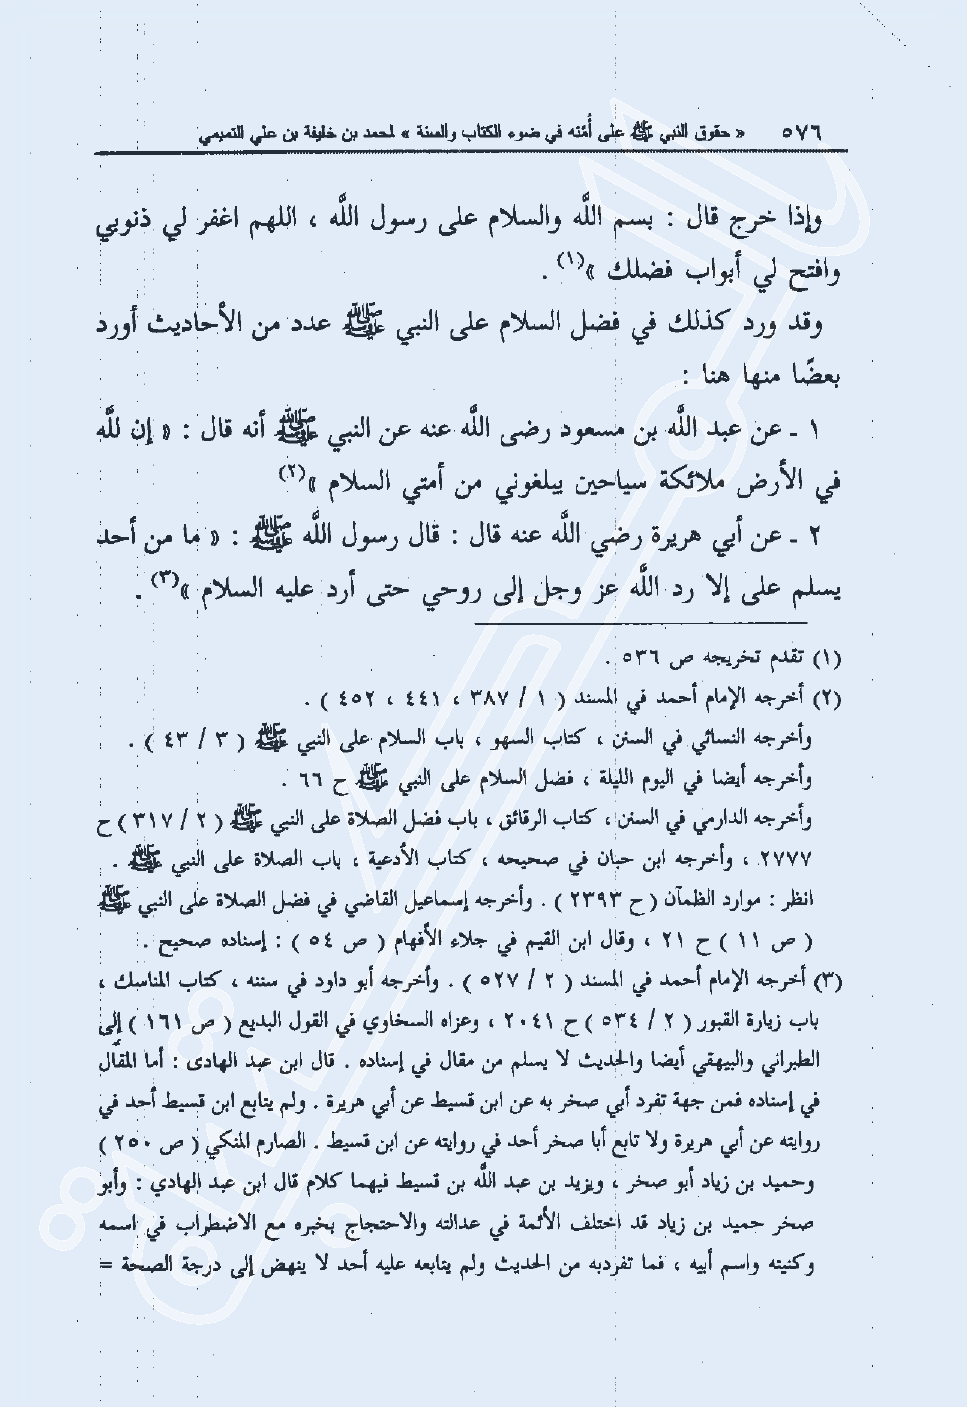 ٥٧٦ « حقوق النبي ﷺ على أمته في ضوء الكتاب والسنة » لمحمد بن خليفة بن علي التميمي
وإذا خرج قال : بسم اللَّه والسلام على رسول اللَّه ، اللهم اغفر لي ذنوبي
وافتح لي أبواب فضلك »(١) .
وقد ورد كذلك في فضل السلام على النبي ﷺ عدد من الأحاديث أورد
بعضًا منها هنا :
١ ـ عن عبد اللَّه بن مسعود رضى اللَّه عنه عن النبي ﷺ أنه قال : « إن للَّه
في الأرض ملائكة سياحين يبلغوني من أمتي السلام »(٢)
٢ ـ عن أبي هريرة رضي اللَّه عنه قال : قال رسول اللَّه ﷺ : « ما من أحد
يسلم على إلا رد اللَّه عز وجل إلى روحي حتى أرد عليه السلام »(٣) .
(١) تقدم تخريجه ص ٥٣٦ .
(٢) أخرجه الإمام أحمد في المسند ( ١ / ٣٨٧ ، ٤٤١ ، ٤٥٢ ) .
وأخرجه النسائي في السنن ، كتاب السهو ، باب السلام على النبي ﷺ ( ٣ / ٤٣ ) .
وأخرجه أيضا في اليوم الليلة ، فضل السلام على النبي ﷺ ح ٦٦ .
وأخرجه الدارمي في السنن ، كتاب الرقائق ، باب فضل الصلاة على النبي ﷺ ( ٢ / ٣١٧ ) ح
٢٧٧٧ ، وأخرجه ابن حبان في صحيحه ، كتاب الأدعية ، باب الصلاة على النبي ﷺ .
انظر : موارد الظمآن ( ح ٢٣٩٣ ) . وأخرجه إسماعيل القاضي في فضل الصلاة على النبي ﷺ
( ص ١١ ) ح ٢١ ، وقال ابن القيم في جلاء الأفهام ( ص ٥٤ ) : إسناده صحيح .
(٣) أخرجه الإمام أحمد في المسند ( ٢ / ٥٢٧ ) . وأخرجه أبو داود في سننه ، كتاب المناسك ،
باب زيارة القبور ( ٢ / ٥٣٤ ) ح ٢٠٤١ ، وعزاه السخاوي في القول البديع ( ص ١٦١ ) إلى
الطبراني والبيهقي أيضا والحديث لا يسلم من مقال في إسناده . قال ابن عبد الهادى : أما المقال
في إسناده فمن جهة تفرد أبي صخر به عن ابن قسيط عن أبي هريرة . ولم يتابع ابن قسيط أحد في
روايته عن أبي هريرة ولا تابع أبا صخر أحد في روايته عن ابن قسيط . الصارم المنكي ( ص ٢٥٠ )
وحميد بن زياد أبو صخر ، ويزيد بن عبد اللَّه بن قسيط فيهما كلام قال ابن عبد الهادي : وأبو
صخر حميد بن زياد قد اختلف الأئمة في عدالته والاحتجاج بخبره مع الاضطراب في اسمه
وكنيته واسم أبيه ، فما تفردبه من الحديث ولم يتابعه عليه أحد لا ينهض إلى درجة الصحة =